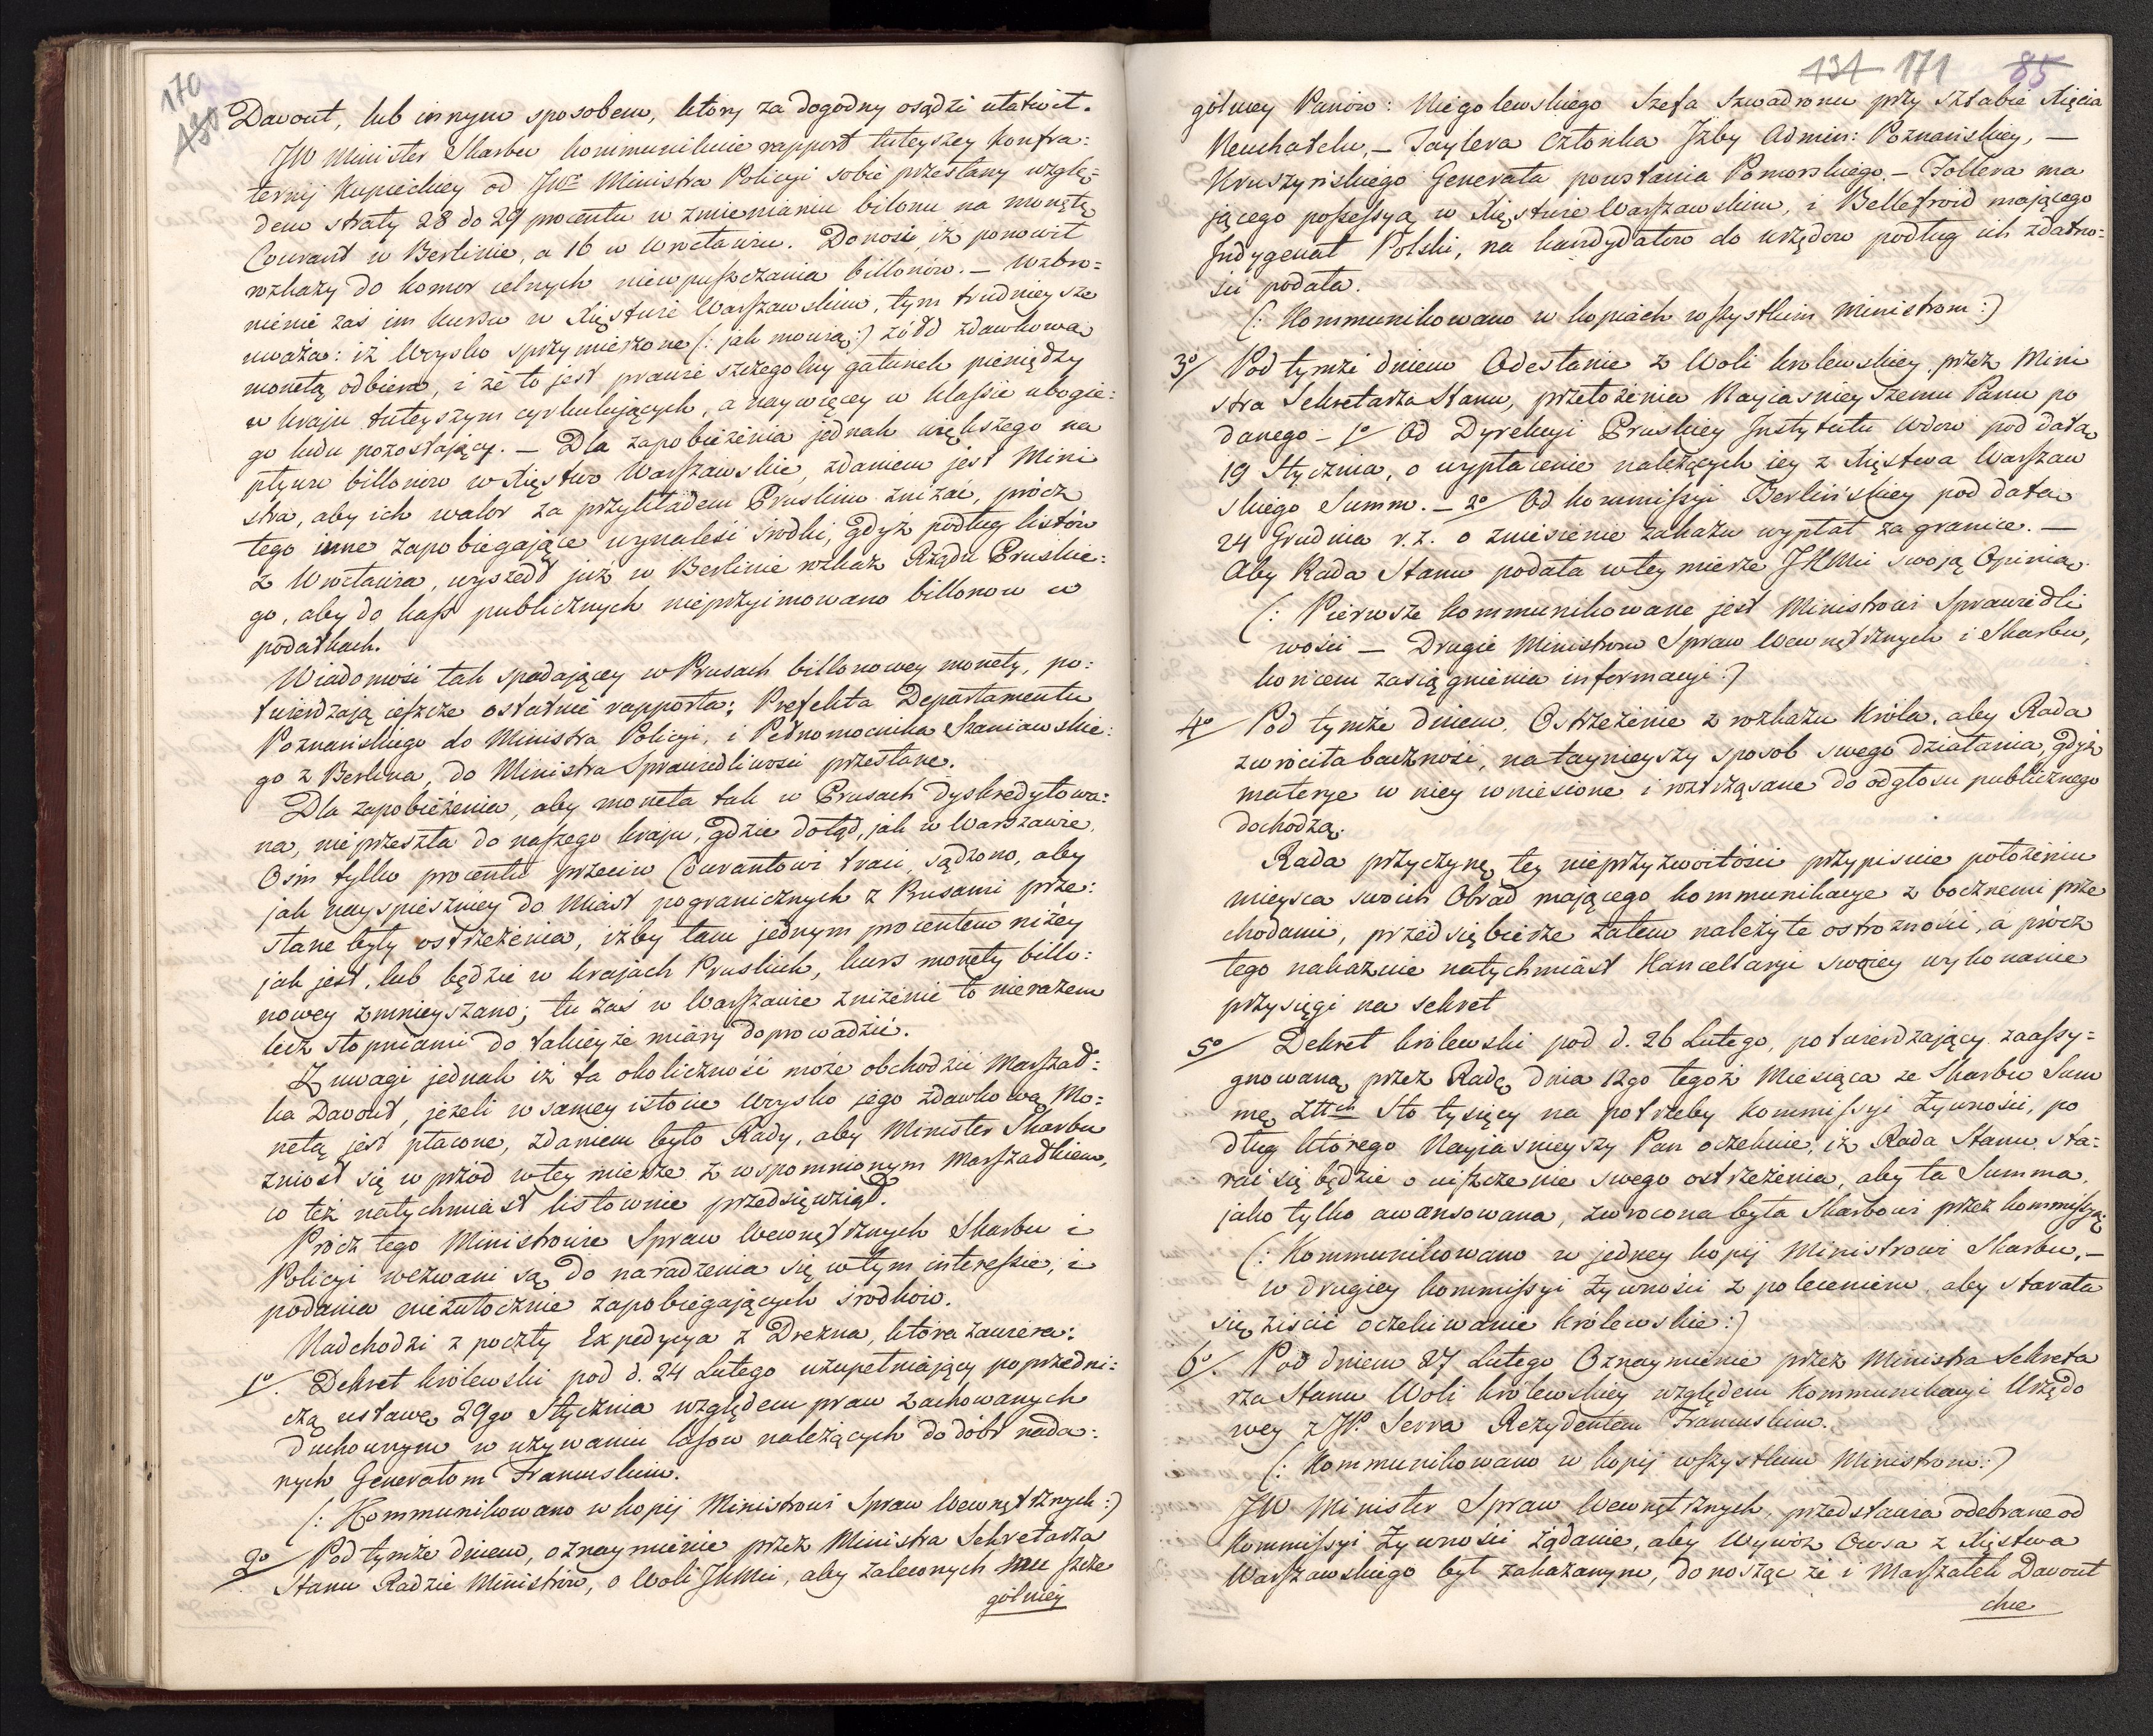 170
130
Davout, lub innym sposobem, ktory za dogodny osądzi ułatwił.
JW Minister Skarbu kommunikuie rapport tuteyszey Konfra:
ternij Kupieckiey od JWo Ministra Policyi sobie przesłany wzglę:
dem straty 28 do 29 procentu w zmienianiu bilonu na monętę
Courant w Berlinie, a 16 w Wrocławiu. Donosi, iż ponowił
rozkazy do komor celnych niewpuszczania billonów. — Wzbro:
nienie zaś im kursu w Xięstwie Warszawskim, tym trudnieysze
uważa: iż Woysko sprzymierzone (: jak mówią :) żołd zdawkową
monetą odbiera, i że to jest prawie szczególny gatunek pieniędzy
w kraju tuteyszym cyrkulujących, a naywięcey w klassie ubogie:
go ludu pozostający. — Dla zapobieżenia jednak większego na
pływu billonów w Xięstwo Warszawskie, zdaniem jest Mini
stra, aby ich walor za przykładem Pruskim zniżać, prócz
tego inne zapobiegające wynaleść środki, gdyż podług listów
z Wrocławia, wyszedł już w Berlinie rozkaz Rządu Pruskie:
go, aby do kass publicznych nieprzyimowano billonow w
podatkach.
Wiadomość tak spadającey w Prusach billonowey monety, po:
twierdzają ieszcze ostatnie rapporta: Prefekta Departamentu
Poznańskiego do Ministra Policyi, i Pełnomocnika Staniawskie:
go z Berlina, do Ministra Sprawiedliwości przesłane.
Dla zapobieżenia, aby moneta tak w Prusach dyskredytowa:
na, nieprzeszła do naszego kraju, gdzie dotąd, jak w Warszawie,
Ośm tylko procentu przeciw Courantowi traci, sądzono, aby
jak nayspieszniey do Miast pogranicznych z Prusami prze:
słane były ostrzeżenia, iżby tam jednym procentem niżey
jak jest, lub będzie w krajach Pruskich, kurs monety billo:
nowey zmnieyszano; tu zaś w Warszawie zniżenie to nierazem
lecz stopniami do takieyże miary doprowadzić.
Z uwagi jednak iż ta okoliczność może obchodzić Marszał:
ka Davout, jeżeli w samey istocie Woysko jego zdawkową Mo:
netą jest płacone, zdaniem było Rady, aby Minister Skarbu
zniosł się w przód w tey mierze z wspomnionym Marszałkiem,
co też natychmiast listownie przedsięwziął.
Prócz tego Ministrowie Spraw Wewnętrznych Skarbu i
Policyi wezwani są do naradzenia się w tym interessie, i
podania niezwłocznie zapobiegających środków.
Nadchodzi z poczty Expedycya z Drezna, która zawiera:
1o/. Dekret królewski pod d. 24 Lutego uzupełniający poprzedni:
czą ustawę 29go Stycznia względem praw zachowanych
Duchownym w używaniu lasow należących do dóbr nada:
nych Generałom Francuskim.
(: Kommunikowano w kopij Ministrowi Spraw Wewnętrznych :)
2o/ Pod tymże dniem, oznaymienie przez Ministra Sekretarza
Stanu Radzie Ministrów, o Woli JKMci, aby zaleconych mu szcze
gólniey
131 171 85
gólniey Panów: Niegolewskiego Szefa Szwadronu przy Sztabie Xięcia
Neuchatelu, — Taylera Członka Izby Admin: Poznańskiey, —
Kruszyńskiego Generała powstania Pomorskiego. — Tollera ma
jącego possessyą w Xięstwie Warszawskim, i Bellefroid mającego
Indygenat Polski, na kandydatow do urzędow podług ich zdatno:
ści podała.
(: Kommunikowano w kopiach wszystkim Ministrom :)
3o/ Pod tymże dniem Odesłanie z Woli królewskiey przez Mini
stra Sekretarza Stanu, przełożenia Nayiaśnieyszemu Panu po
danego — 1o/ Od Dyrekcyi Pruskiey Instytutu Wdow pod datą
19 Stycznia, o wypłacenie należących iey z Xięstwa Warszaw
skiego Summ. — 2o/ Od Kommissyi Berlińskiey pod datą
24 Grudnia r. z. o zniesienie zakazu wypłat za granicę. —
Aby Rada Stanu podała w tey mierze JKMci swoją Opinią.
(: Pierwsze kommunikowane jest Ministrowi Sprawiedli
wości — Drugie Ministrom Spraw Wewnętrznych i Skarbu,
końcem zasiągnienia informacyi :)
4o/ Pod tymże dniem, Ostrzeżenie z rozkazu Króla, aby Rada
zwróciła baczność, na taynieyszy sposob swego działania, gdyż
materye w niey wniesione i roztrząsane do odgłosu publicznego
dochodzą.
Rada przyczynę tey nieprzyzwoitości przypisuie położeniu
mieysca swoich Obrad mającego kommunikacye z bocznemi prze
chodami, przedsiębierze zatem należyte ostrożności, a prócz
tego nakazuie natychmiast Kancellaryi swoiey wykonanie
przysięgi na sekret
5o/ Dekret królewski pod d. 26 Lutego, potwierdzający zaassy=
gnowaną przez Radę dnia 12go tegoż Miesiąca ze Skarbu Sum
mę Złtch Sto tysięcy na potrzeby Kommissyi Żywności, po
dług którego Nayiaśnieyszy Pan oczekuie, iż Rada Stanu sta:
rać się będzie o uiszczenie swego ostrzeżenia, aby ta Summa,
jako tylko awansowana, zwrócona była Skarbowi przez Kommissyą
(: Kommunikowano w jedney kopij Ministrowi Skarbu, —
w drugiey Kommissyi Żywności z poleceniem, aby starała
się ziścić oczekiwanie królewskie :)
6o/. Pod dniem 27 Lutego Oznaymienie przez Ministra Sekreta
rza Stanu Woli królewskiey względem Kommunikacyi Urzędo
wey z JP. Serra Rezydentem Francuskim.
(: Kommunikowano w kopij wszystkim Ministrom :)
JW Minister Spraw Wewnętrznych, przedstawia odebrane od
Kommissyi Żywności żądanie, aby Wywóz Owsa z Xięstwa
Warszawskiego był zakazanym, donosząc że i Marszałek Davout
chce